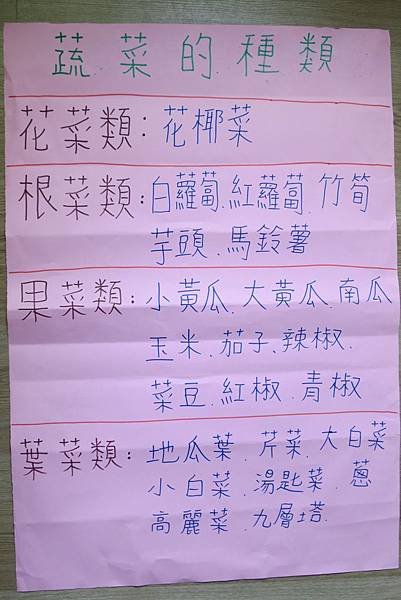 蔬菜的種類
花菜類：花椰菜
根菜類：白蘿蔔、紅蘿蔔、竹筍
芋頭、馬鈴薯
果菜類：小黃瓜、大黃瓜、南瓜
玉米、茄子、辣椒、
菜豆、紅椒、青椒
葉菜類：地瓜葉、芹菜、大白菜
小白菜、湯匙菜、蔥
高麗菜、九層塔、